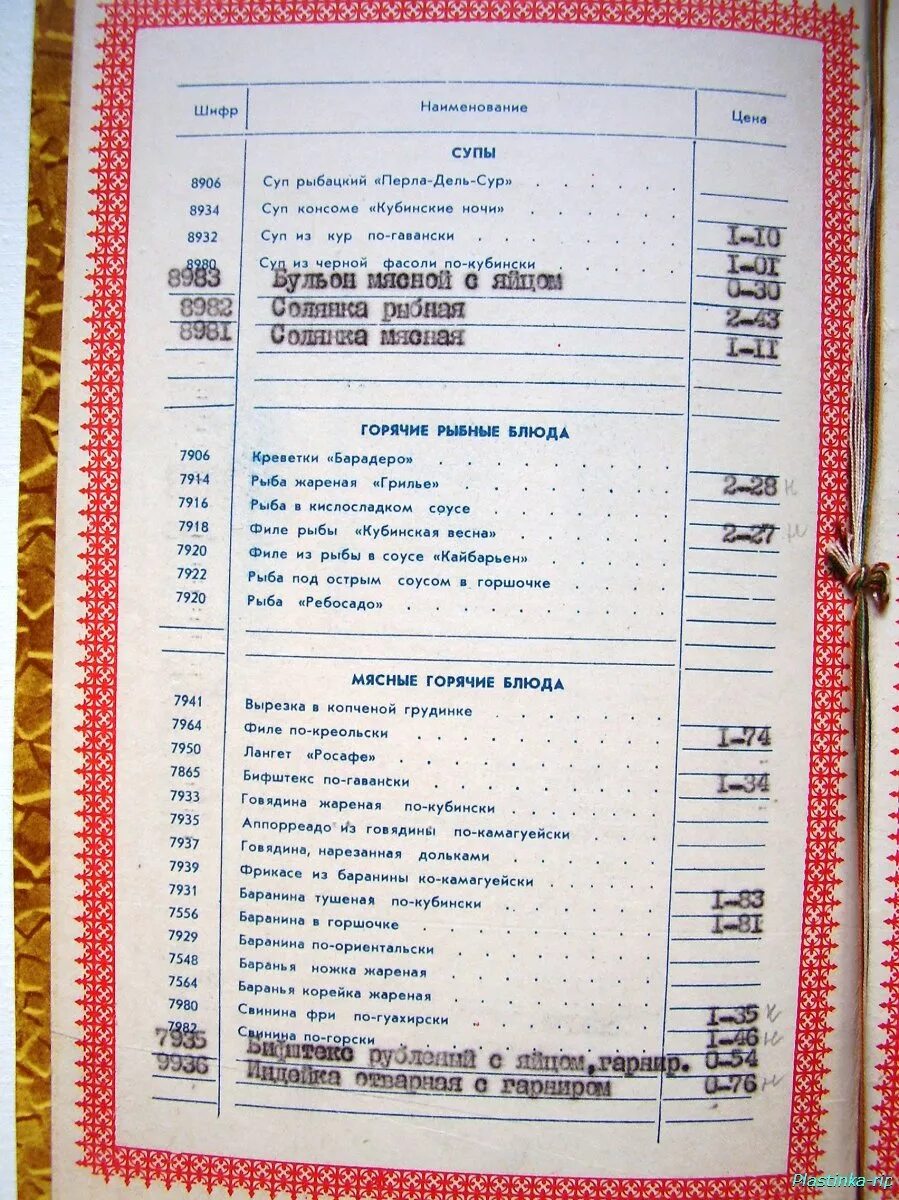 Шифр Наименование Цена
СУПЫ
8906 Суп рыбацкий «Перла-Дель-Сур» . . . . .
8934 Суп консоме «Кубинские ночи» . . . . .
8932 Суп из кур по-гавански . . . . . . 1-10
8980 Суп из черной фасоли по-кубински . . . . 1-01
8983 Бульон мясной с яйцом 0-30
8982 Солянка рыбная 2-43
8981 Солянка мясная 1-11
ГОРЯЧИЕ РЫБНЫЕ БЛЮДА
7906 Креветки «Барадеро» . . . . . . .
7914 Рыба жареная «Грилье» . . . . . . 2-28 н
7916 Рыба в кислосладком соусе . . . . .
7918 Филе рыбы «Кубинская весна» . . . . . 2-27 н
7920 Филе из рыбы в соусе «Кайбарьен» . . . .
7922 Рыба под острым соусом в горшочке . . . .
7920 Рыба «Ребосадо» . . . . . . .
МЯСНЫЕ ГОРЯЧИЕ БЛЮДА
7941 Вырезка в копченой грудинке . . . . .
7964 Филе по-креольски . . . . . . . 1-74
7950 Лангет «Росафе» . . . . . . .
7865 Бифштекс по-гавански . . . . . . 1-34
7933 Говядина жареная по-кубински . . . . .
7935 Аппорреадо из говядины по-камагуейски . . .
7937 Говядина, нарезанная дольками . . . . .
7939 Фрикасе из баранины ко-камагуейски . . . .
7931 Баранина тушеная по-кубински . . . . . 1-83
7556 Баранина в горшочке . . . . . . 1-81
7929 Баранина по-ориентальски . . . . . .
7548 Баранья ножка жареная . . . . . .
7564 Баранья корейка жареная . . . . . .
7980 Свинина фри по-гуахирски . . . . . 1-35 н
7982 Свинина по-горски . . . . . . 1-46 н
7935 Бифштекс рубленый с яйцом, гарнир. 0-54
9936 Индейка отварная с гарниром 0-76 н
Plastinka-rip